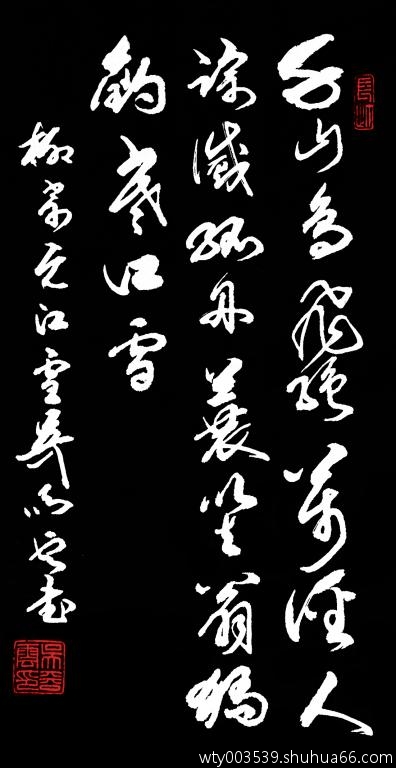 千山鳥飛絕萬徑人
踪滅孤舟蓑笠翁獨
釣寒江雪
柳宗元江雪
wty003539.shuhua66.com